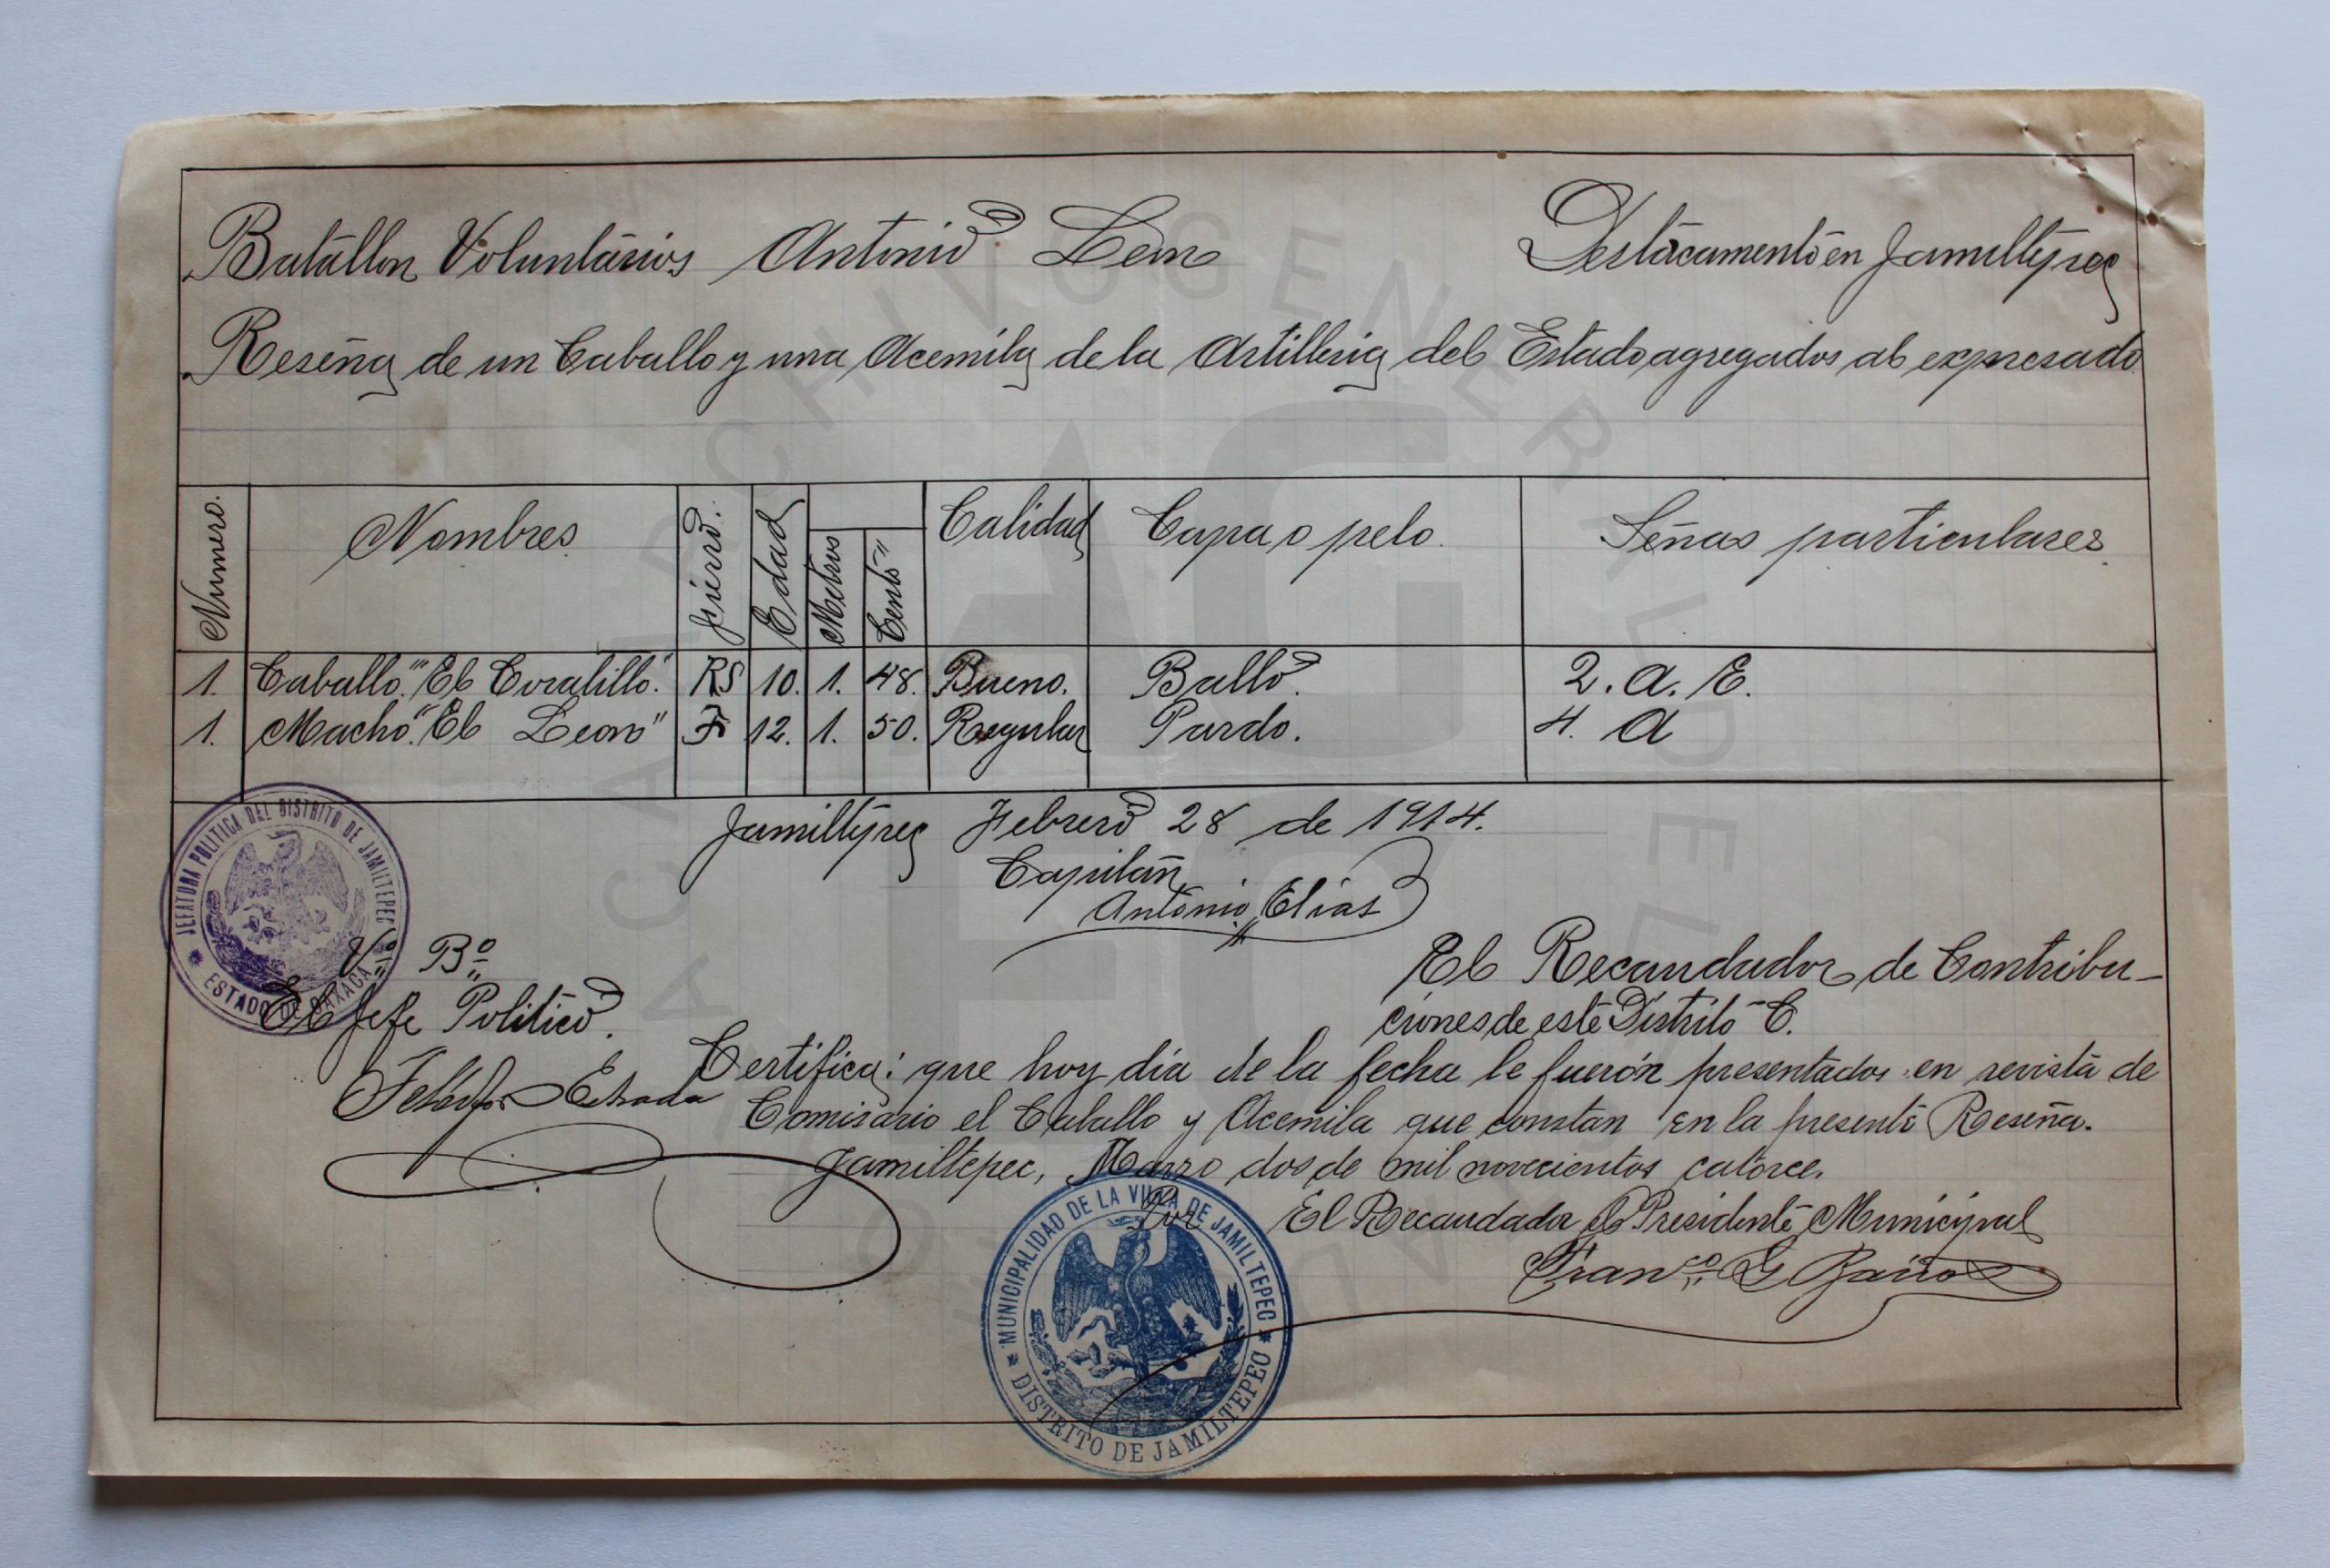 Batallon Voluntarios Antonio Leon Destacamento en Jamiltepec
Reseña de un Caballo y una Acemila de la Artilleria del Estado agregados al expresado
Numero. Nombres Fierro. Edad Metros Cents Calidad Capa o pelo. Señas particulares
1. Caballo. "El Coralillo." RS 10. 1. 48. Bueno. Ballo. 2. A. E.
1. Macho. "El Leon" F 12. 1. 50. Regular Pardo. 4. A
Jamiltepec Febrero 28 de 1914.
Capitan
Antonio Elias
JEFATURA POLITICA DEL DISTRITO DE JAMILTEPEC
ESTADO DE OAXACA
Vo. Bo.
El Jefe Politico.
Estrada
El Recaudador de Contribu-
ciones de este Distrito C.
Certifica: que hoy dia de la fecha le fuerón presentados en revista de
Comisario el Caballo y Acemila que constan en la presente Reseña.
Jamiltepec, Marzo dos de mil novecientos catorce.
Por El Recaudador El Presidente Municipal
Franco. G Baños
MUNICIPALIDAD DE LA VILLA DE JAMILTEPEC
DISTRITO DE JAMILTEPEC